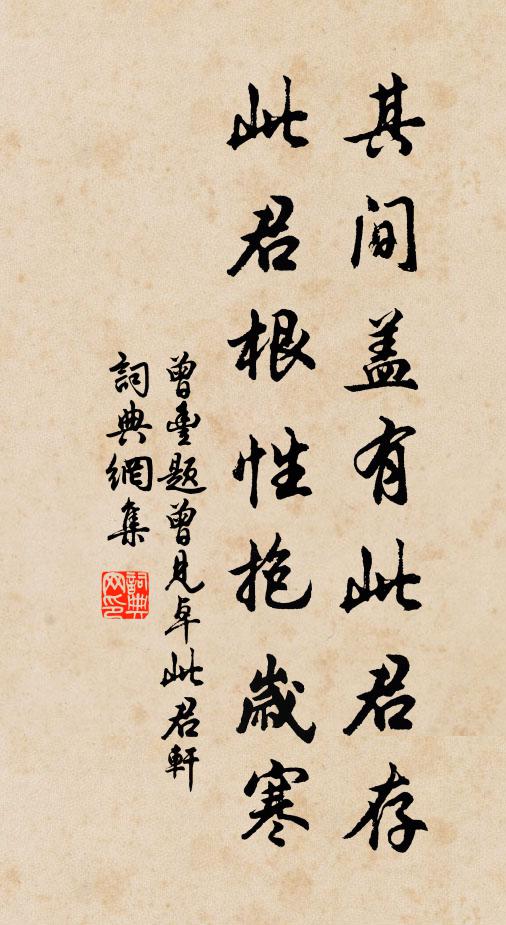 其间盖有此君存
此君根性抱歳寒
曾豊题曾見卓此君軒
詞典網集
詞典网印